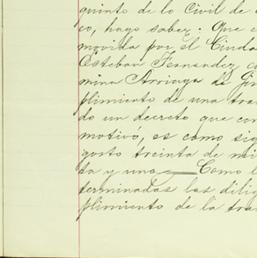 quinto de lo Civil de
co, hago saber: Que e
movida por el Ciuda
Esteban Fernandez c
mina Arriaga de Ji
plimiento de una tra
do un decreto que con
motivó, es como sig
gosto treinta de mi
ta y uno Como l
terminadas las dilig
plimiento de la tra